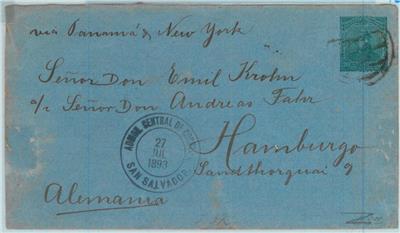 via Panamá & New York
Señor Don Emil Krohn
a/c Señor Don Andreas Fahr
Hamburgo
Sandthorquai 9
Alemania
ADMON. CENTRAL DE
27
JUL
1893
SAN SALVADOR